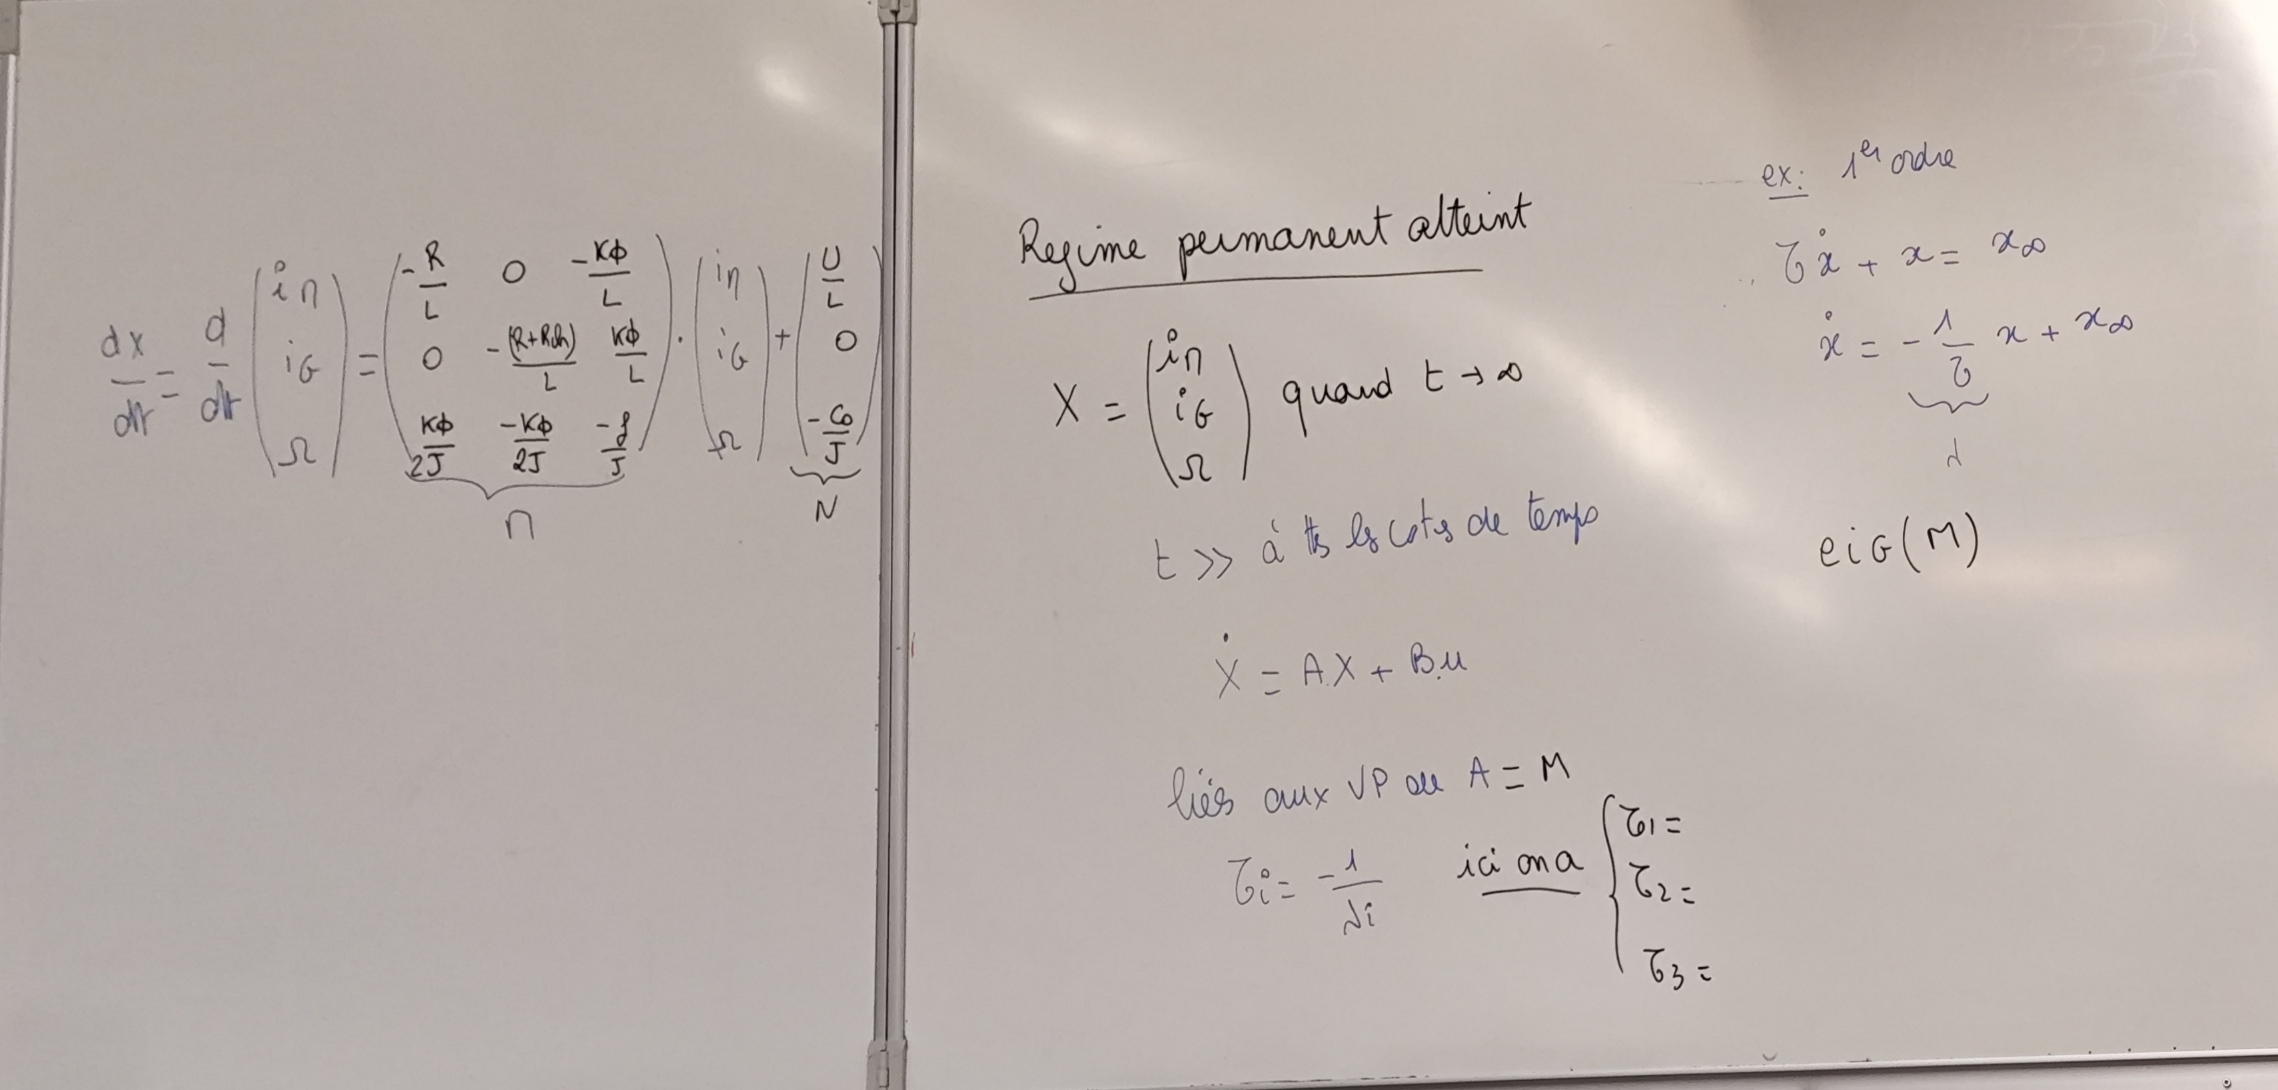 dx/dt = d/dt (iM iG Ω) = (-R/L 0 -KΦ/L
0 -(R+Rch)/L KΦ/L
KΦ/2J -KΦ/2J -f/J) · (iM iG Ω) + (U/L 0 -C0/J)
M N
Regime permanent atteint
X = (iM iG Ω) quand t → ∞
t >> à tts les cstes de temps
Ẋ = A.X + B.u
liés aux VP de A = M
τi = -1/λi ici on a { τ1 =
τ2 =
τ3 =
ex: 1er ordre
τẋ + x = x∞
ẋ = -1/τ x + x∞
λ
eiG(M)